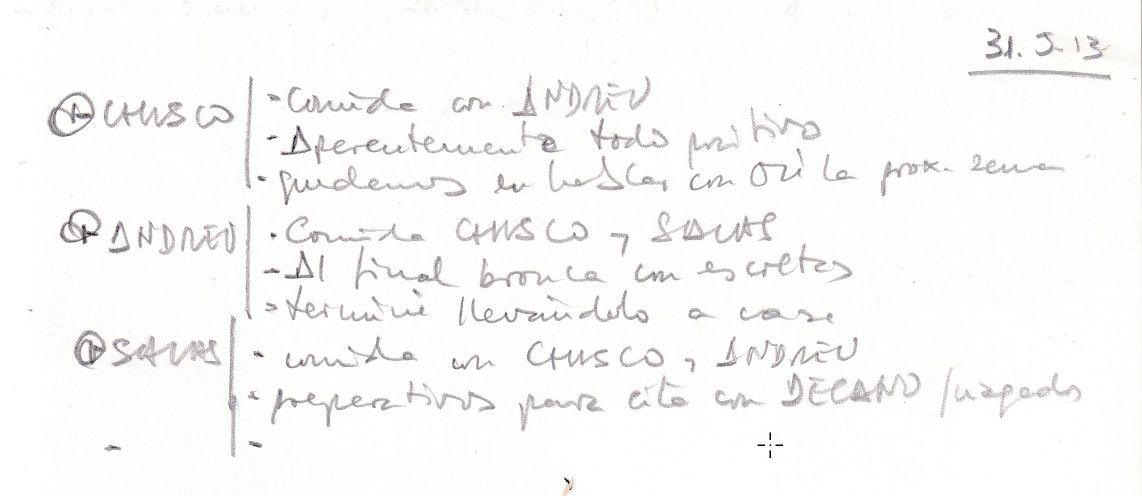 31.5-13
⊕ CHUSCO | - Comida con ANDREU
- Aparentemente todo positivo
- quedamos en hablar con Oti la prox. semana
⊕ ANDREU | - Comida CHUSCO y SALAS
- Al final bronca con escoltas
- termine llevándolo a casa
⊕ SALAS | - comida con CHUSCO y ANDREU
- preparativos para cita con DECANO juzgados
- | -